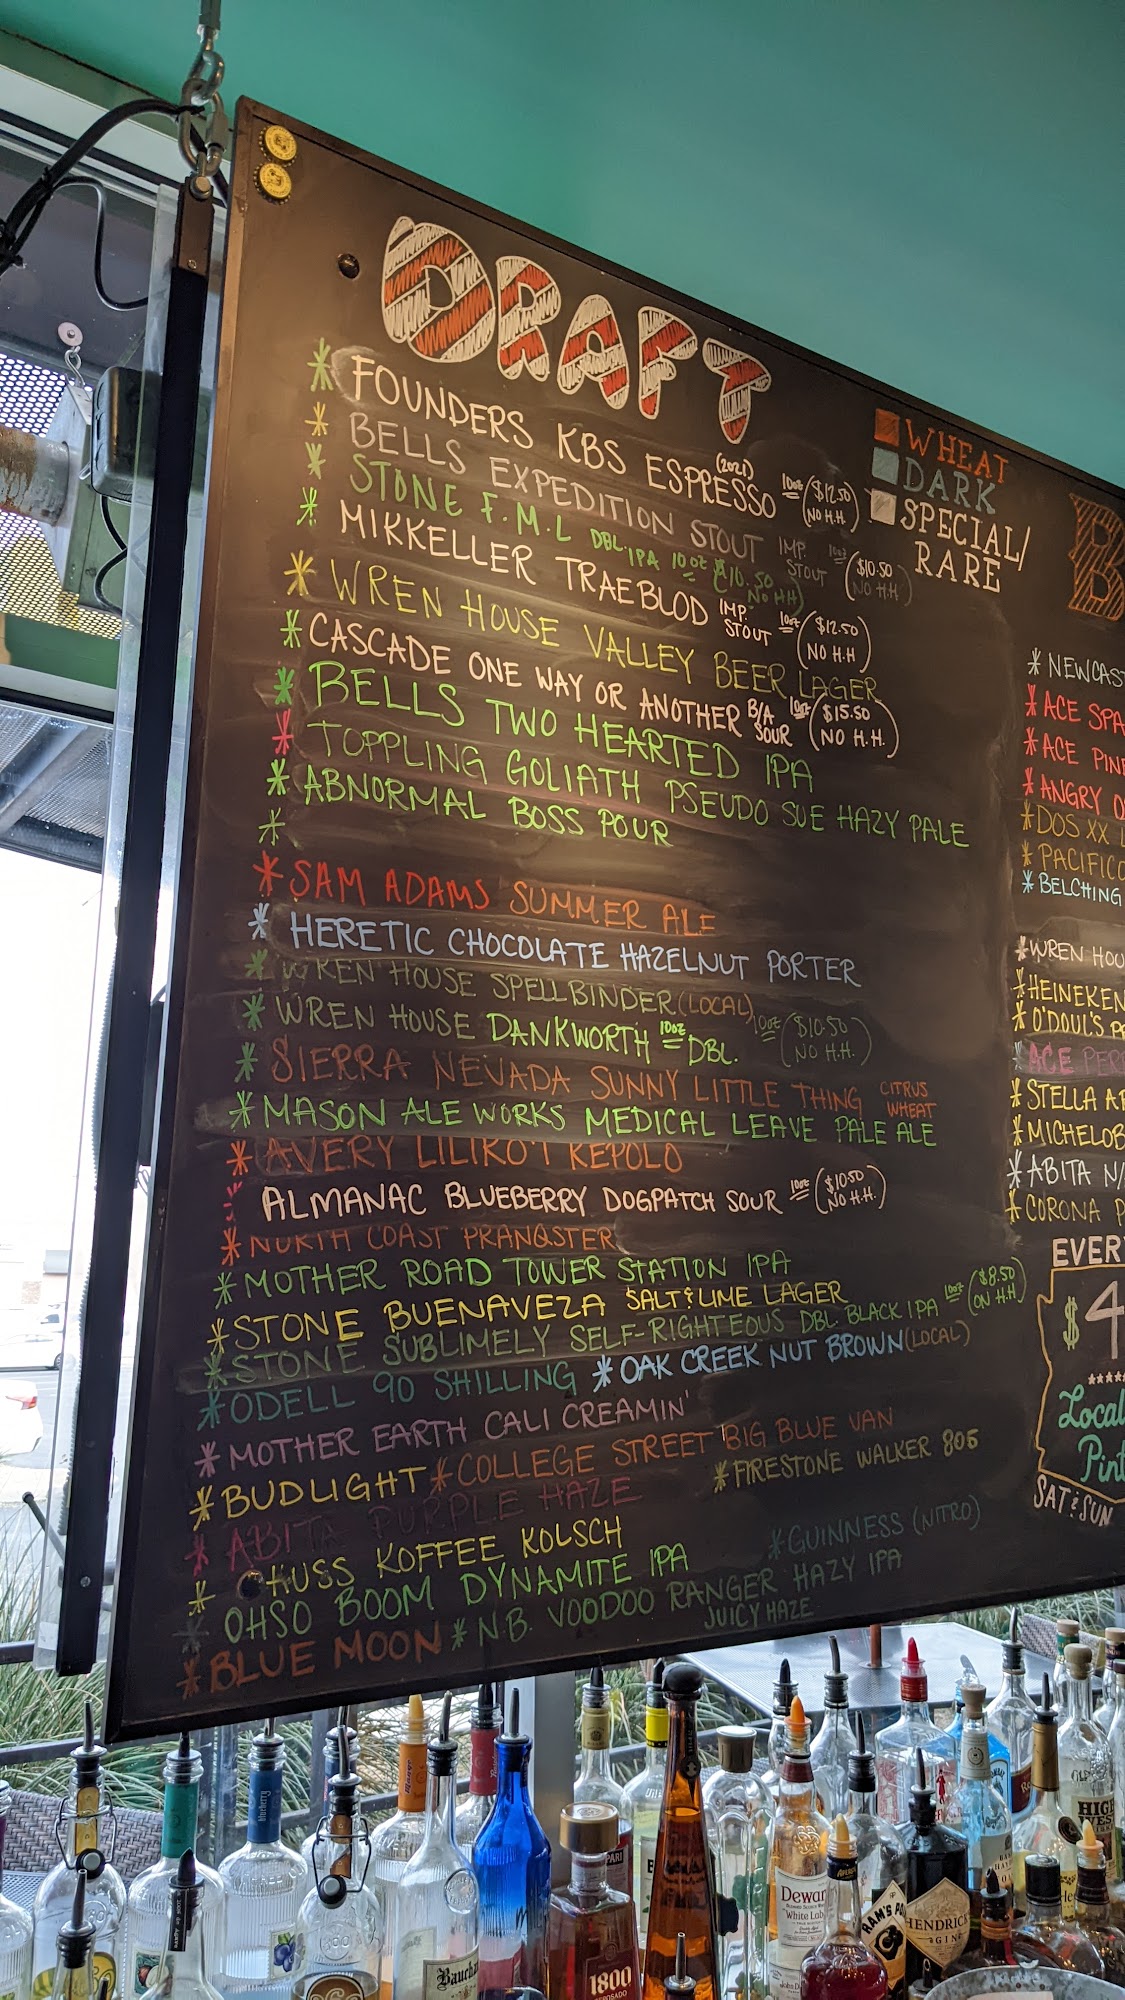 DRAFT
WHEAT
DARK
SPECIAL/
RARE
* FOUNDERS KBS ESPRESSO (2021) 10oz ($12.50 NO H.H.)
* BELLS EXPEDITION STOUT IMP. STOUT 10oz ($10.50 NO H.H)
* STONE F.M.L DBL. IPA 10oz ($10.50 NO HH)
* MIKKELLER TRAEBLOD IMP. STOUT 10oz ($12.50 NO H.H)
* WREN HOUSE VALLEY BEER LAGER
* CASCADE ONE WAY OR ANOTHER B/A SOUR 10oz ($15.50 NO H.H.)
* BELLS TWO HEARTED IPA
* TOPPLING GOLIATH PSEUDO SUE HAZY PALE
* ABNORMAL BOSS POUR
*
* SAM ADAMS SUMMER ALE
* HERETIC CHOCOLATE HAZELNUT PORTER
* WREN HOUSE SPELLBINDER (LOCAL)
* WREN HOUSE DANKWORTH 10oz DBL. 10oz ($10.50 NO H.H.)
* SIERRA NEVADA SUNNY LITTLE THING CITRUS WHEAT
* MASON ALE WORKS MEDICAL LEAVE PALE ALE
* AVERY LILIKO'I KEPOLO
* ALMANAC BLUEBERRY DOGPATCH SOUR 10oz ($10.50 NO H.H.)
* NORTH COAST PRANQSTER
* MOTHER ROAD TOWER STATION IPA
* STONE BUENAVEZA SALT & LIME LAGER
* STONE SUBLIMELY SELF-RIGHTEOUS DBL. BLACK IPA 10oz ($8.50 ON H.H)
* ODELL 90 SHILLING * OAK CREEK NUT BROWN (LOCAL)
* MOTHER EARTH CALI CREAMIN'
* BUDLIGHT * COLLEGE STREET BIG BLUE VAN
* FIRESTONE WALKER 805
* ABITA PURPLE HAZE
* HUSS KOFFEE KOLSCH
* GUINNESS (NITRO)
* OHSO BOOM DYNAMITE IPA
* BLUE MOON * N.B. VOODOO RANGER HAZY IPA
JUICY HAZE
B
* NEWCAST
* ACE SPA
* ACE PINE
* ANGRY O
* DOS XX L
* PACIFICO
* BELCHING
* WREN HOU
* HEINEKEN
* O'DOUL'S
* ACE PER
* STELLA AR
* MICHELOB
* ABITA N/
* CORONA P
EVER
$ 4
*****
Local
Pint
SAT & SUN
blueberry
1800
REPOSADO
Dewar
White Lab
HENDRICK
GIN
HIGH
WEST